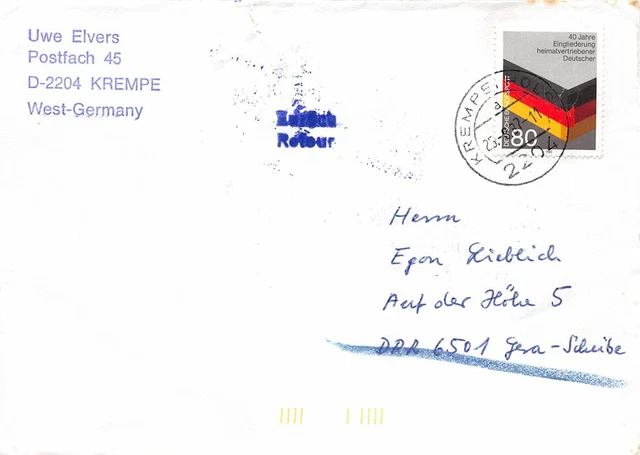 Uwe Elvers
Postfach 45
D-2204 KREMPE
West-Germany
Zurück
Retour
40 Jahre
Eingliederung
heimatvertriebener
Deutscher
DEUTSCHE BUNDESPOST
80
KREMPE, HOLST
a
2204
Herrn
Egon Lieblich
Auf der Höhe 5
DDR 6501 Gera-Scheibe